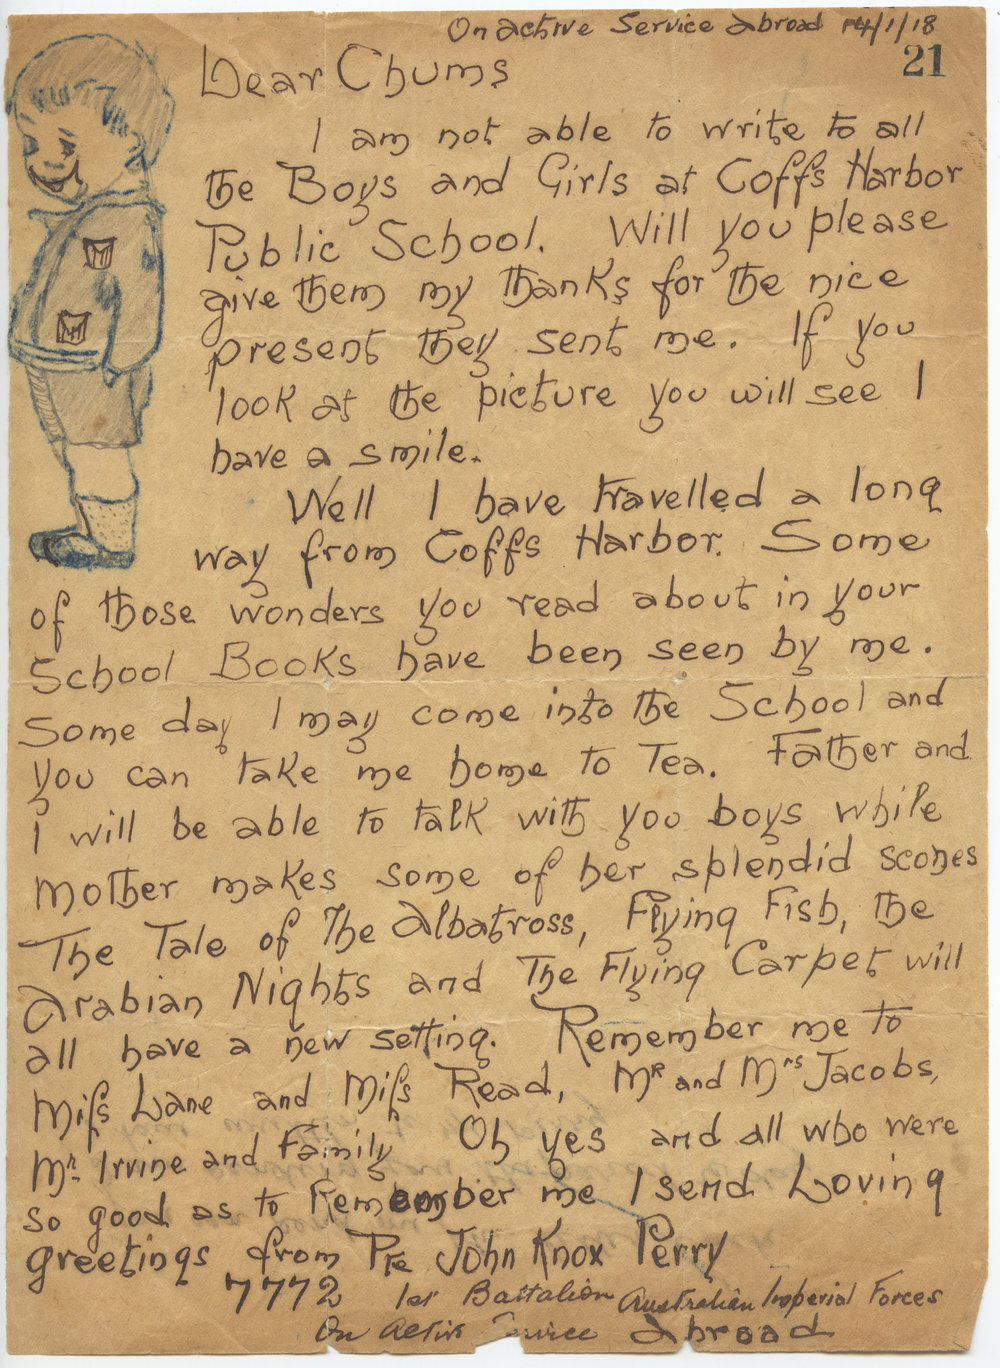 On active Service abroad 14/1/18
21
Dear Chums
I am not able to write to all
the Boys and Girls at Coffs Harbor
Public School. Will you please
give them my thanks for the nice
present they sent me. If you
look at the picture you will see I
have a smile.
Well I have travelled a long
way from Coffs Harbor. Some
of those wonders you read about in your
School Books have been seen by me.
Some day I may come into the School and
you can take me home to Tea. Father and
I will be able to talk with you boys while
Mother makes some of her splendid scones
The Tale of The Albatross, Flying Fish, the
Arabian Nights and The Flying Carpet will
all have a new setting. Remember me to
Miſs Lane and Miſs Read, Mr and Mrs Jacobs,
Mr. Irvine and Family Oh yes and all who were
so good as to Remember me I send Loving
greetings from Pte John Knox Perry
7772 1st Battalion Australian Imperial Forces
On Active Service Abroad